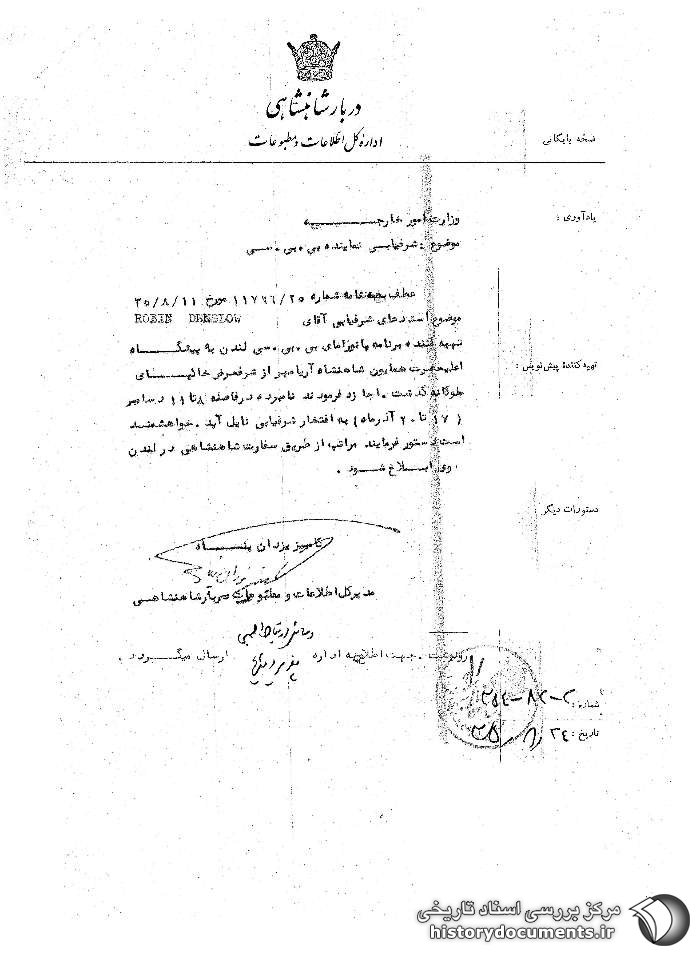 دربار شاهنشاهی
اداره کل اطلاعات و مطبوعات
نسخه بایگانی
یادآوری :
وزارت امور خارجـــــــه
موضوع : شرفیابی نماینده بی . بی . سی
عطف بنامه شماره ۱۱۷۶۶/۲۵ مورخ ۳۵/۸/۱۱
موضوع استدعای شرفیابی آقای ROBIN DENSLOW
تهیه کننده برنامه پانورامای بی . بی . سی لندن به پیشگـــاه
تهیه کنندۀ پیش نویس :
اعلیحضرت همایون شاهنشاه آریامهر از شرفعرض خاکپـــای
ملوکانه گذشت . اجازه فرمودند نامبرده در فاصله ۸ تا ۱۱ دسامبر
( ۱۷ تا ۲۰ آذرماه ) به افتخار شرفیابی نایل آید . خواهشمند
است دستور فرمایند مراتب از طریق سفارت شاهنشاهی در لندن
ابـــلاغ شـــود .
دستورات دیگر
کامبیز یزدان پنـــاه
مدیر کل اطلاعات و مطبوعات دربار شاهنشاهــی
رونوشت . جهت اطلاع به اداره ارسال میگـــردد .
شماره : ۲-۸۲-۲۵۴
تاریخ : ۲۴ / ۸ / ۳۵
مرکز بررسی اسناد تاریخی
historydocuments.ir